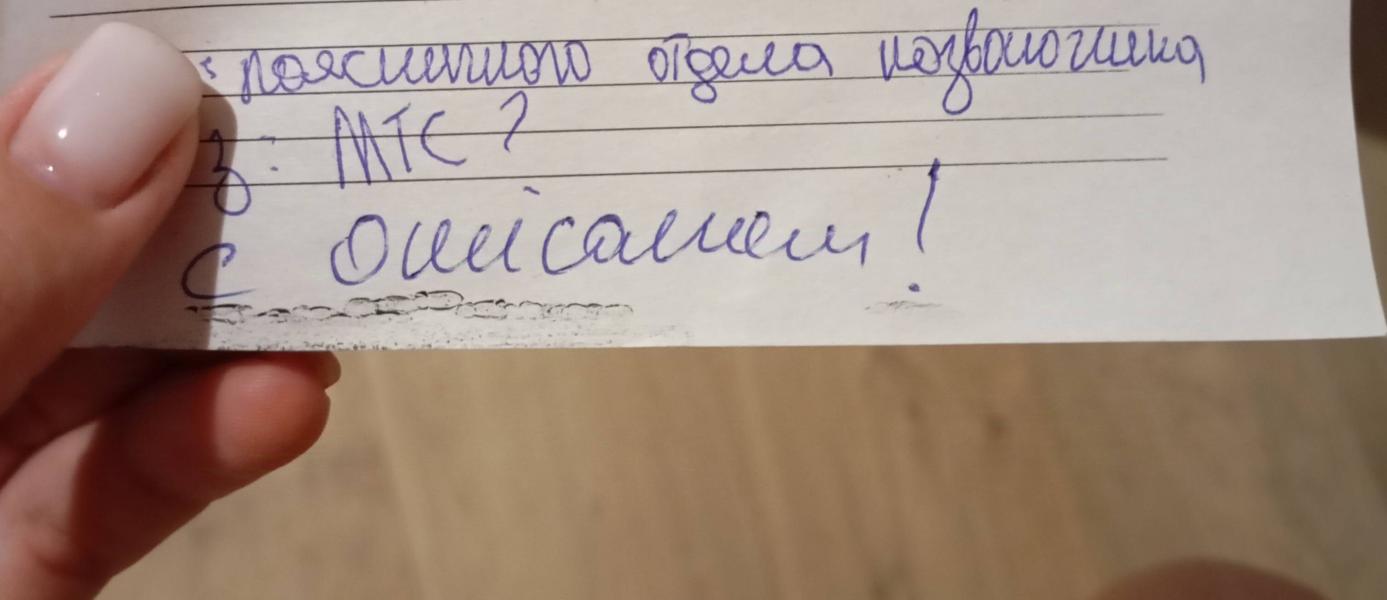 поясничного отдела позвоночника
з: МТС?
с описанием!